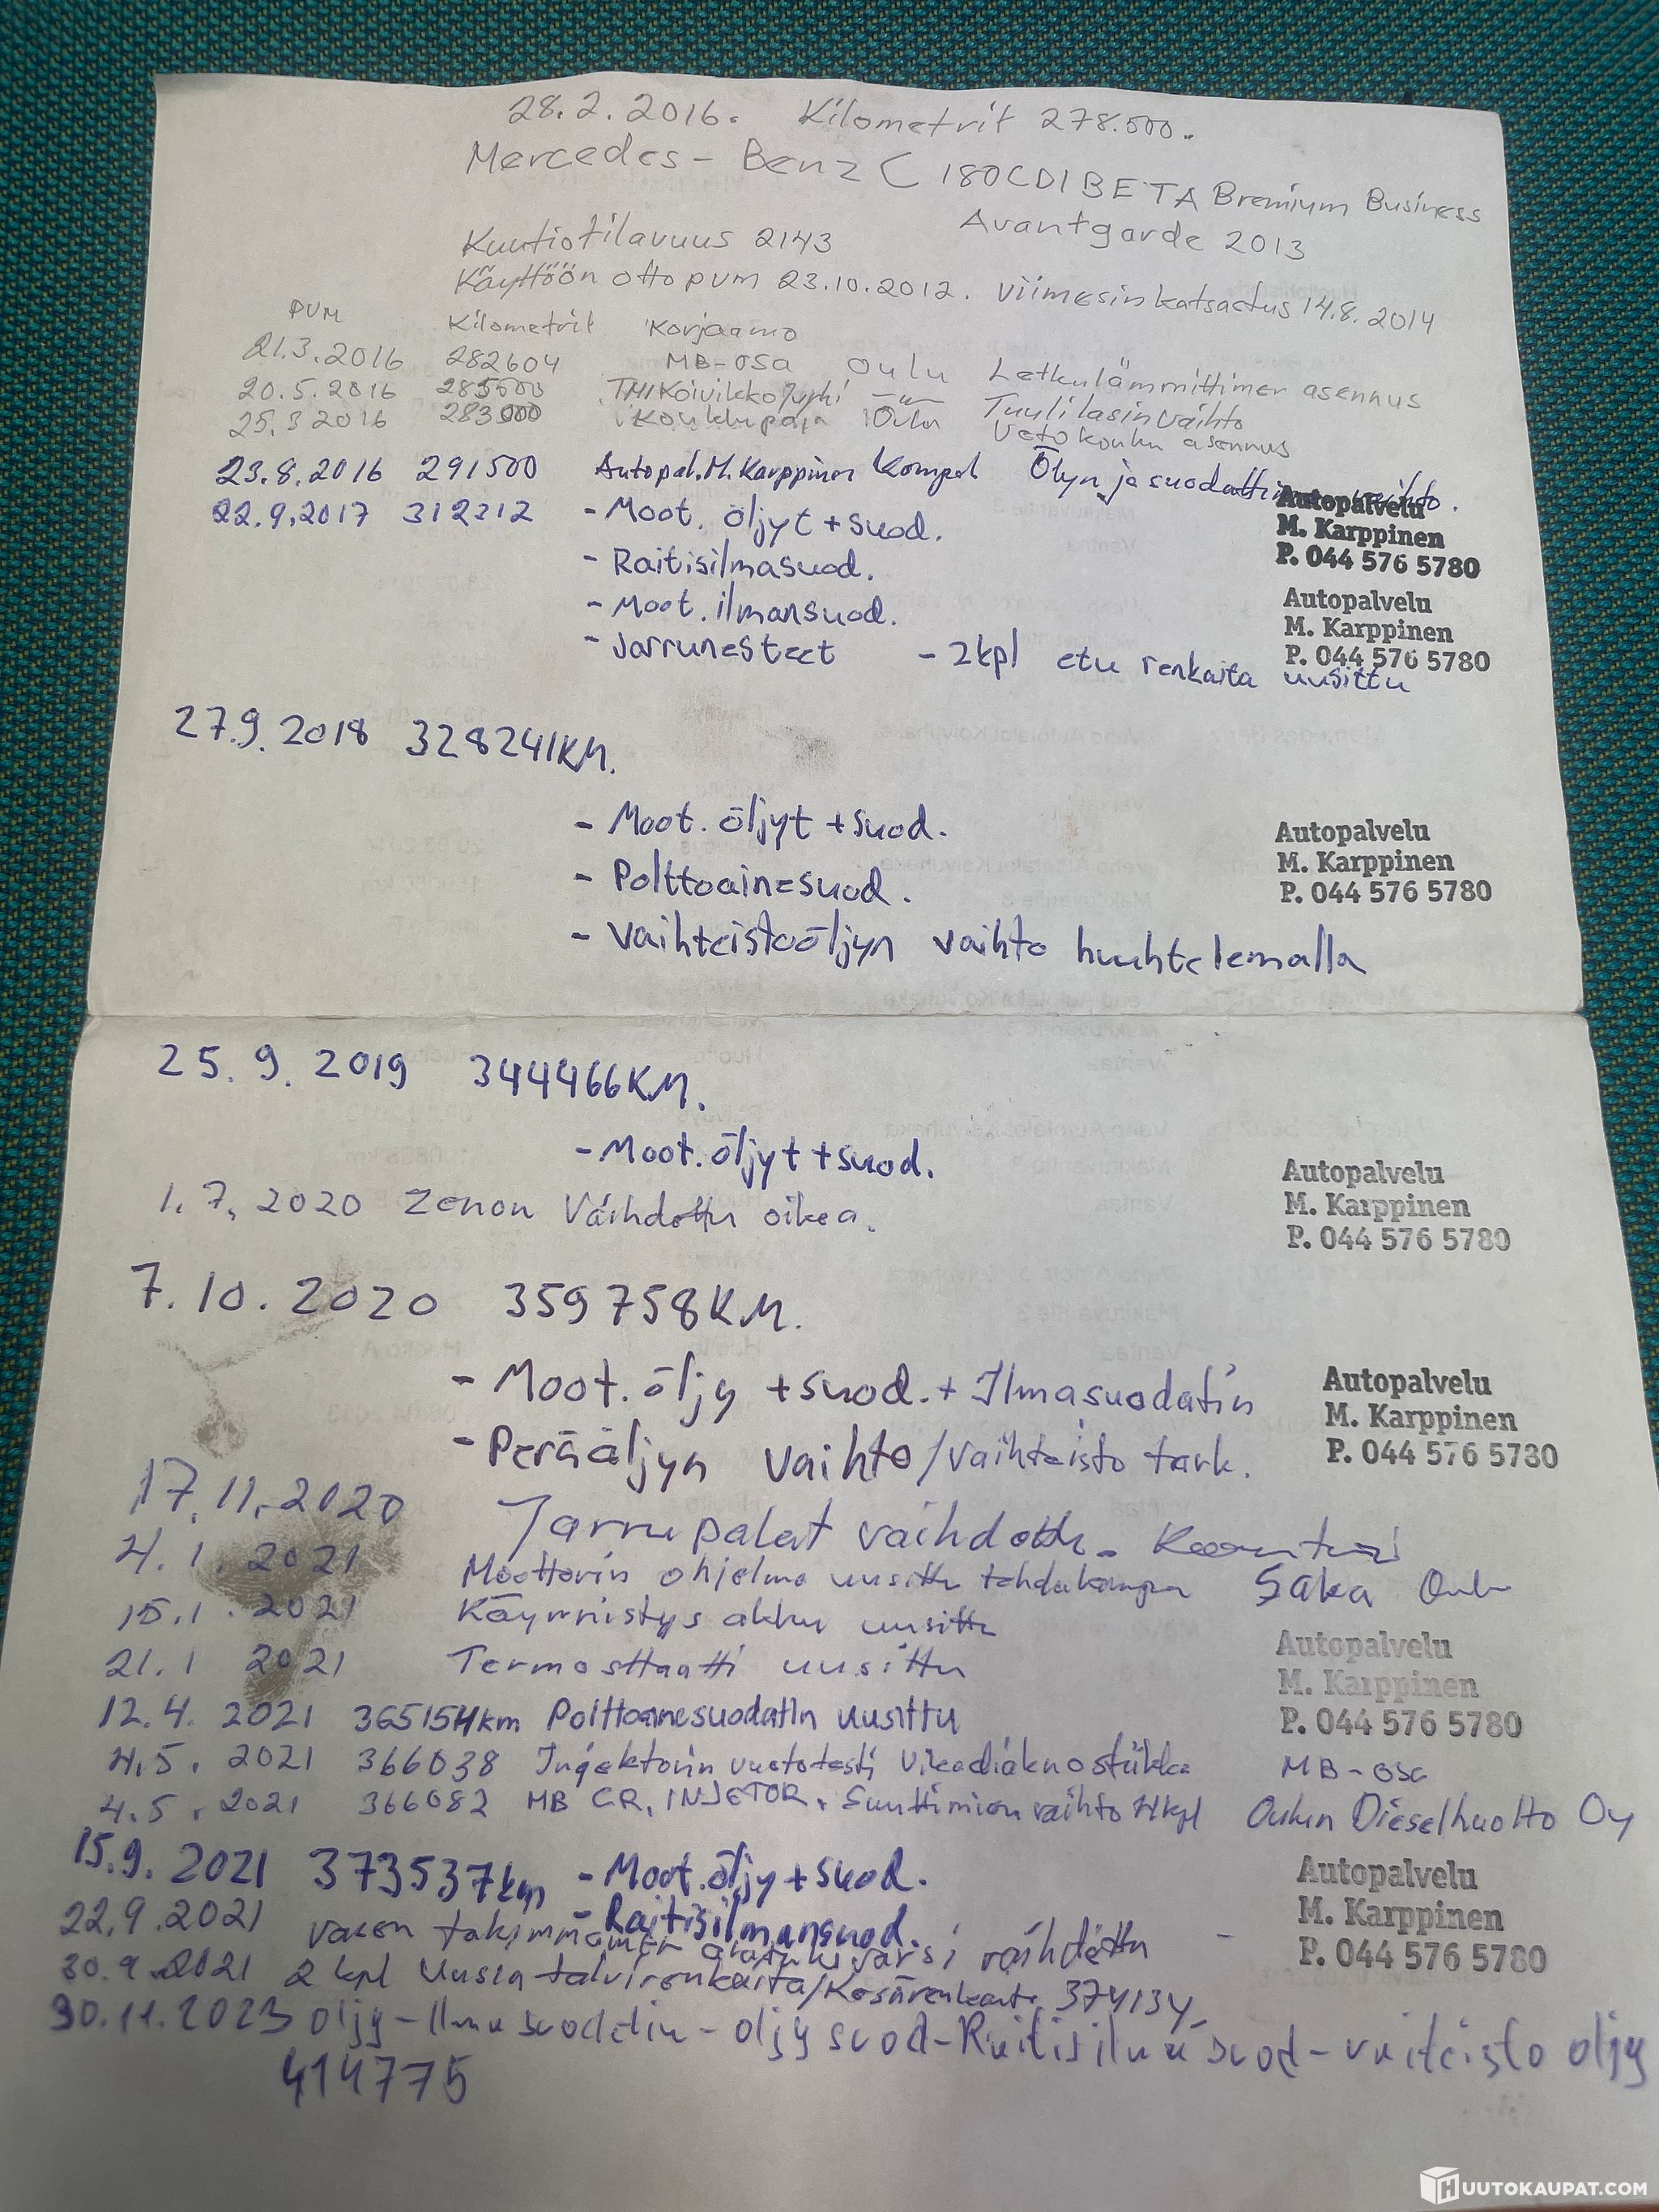 28.2.2016. Kilometrit 278.500.
Mercedes-Benz C 180CDI BETA Bremium Business
Avantgarde 2013
Kuutiotilavuus 2143
Käyttöön otto pvm 23.10.2012. viimesin katsastus 14.8.2014
PVM Kilometrit Korjaamo
21.3.2016 282604 MB-OSA Oulu Letkulämmittimen asennus
20.5.2016 285500 TMI Koivikko Tuulilasin vaihto
25.3 2016 283000 Koukkupaja Oulu Vetokoukku asennus
23.8.2016 291500 Autopal. M. Karppinen Kempel Öljyn ja suodattimen vaihto.
22.9.2017 312312 - Moot. öljyt + suod.
Autopalvelu
M. Karppinen
P. 044 576 5780
- Raitisilmasuod.
- Moot. ilmansuod.
- Jarrunesteet - 2kpl etu renkaita uusittu
Autopalvelu
M. Karppinen
P. 044 576 5780
27.9.2018 328241KM.
- Moot. öljyt + suod.
- Polttoainesuod.
- Vaihteistoöljyn vaihto huuhtelemalla
Autopalvelu
M. Karppinen
P. 044 576 5780
25.9.2019 344466KM.
- Moot. öljyt + suod.
1.7.2020 Zenon Vaihdettu oikea.
Autopalvelu
M. Karppinen
P. 044 576 5780
7.10.2020 359758KM.
- Moot. öljy + suod. + Ilmasuodatin
- Peräöljyn vaihto/vaihteisto tark.
Autopalvelu
M. Karppinen
P. 044 576 5780
17.11.2020 Jarrupalat vaihdettu
4.1.2021 Moottorin ohjelma uusittu Saka Oulu
15.1.2021 Käynnistys akku uusittu
21.1 2021 Termosttaatti uusittu
12.4.2021 365154km Polttoainesuodatin uusittu
Autopalvelu
M. Karppinen
P. 044 576 5780
4.5.2021 366038 Injektorin vuototesti Vikadiaknostiikka MB-osa
4.5.2021 366082 MB CR. INJETOR. Suuttimien vaihto 4kpl Oulun Dieselhuolto Oy
15.9.2021 373537km - Moot. öljy + suod.
- Raitisilmansuod.
Autopalvelu
M. Karppinen
P. 044 576 5780
22.9.2021 vasen takimmainen alatukivarsi vaihdettu -
30.9.2021 2 kpl Uusia talvirenkaita/Kesärenkaita 374134
30.11.2023 öljy-Ilmasuodatin-öljysuod-Raitisilmasuod-vaiteisto öljy
414775
HUUTOKAUPAT.COM